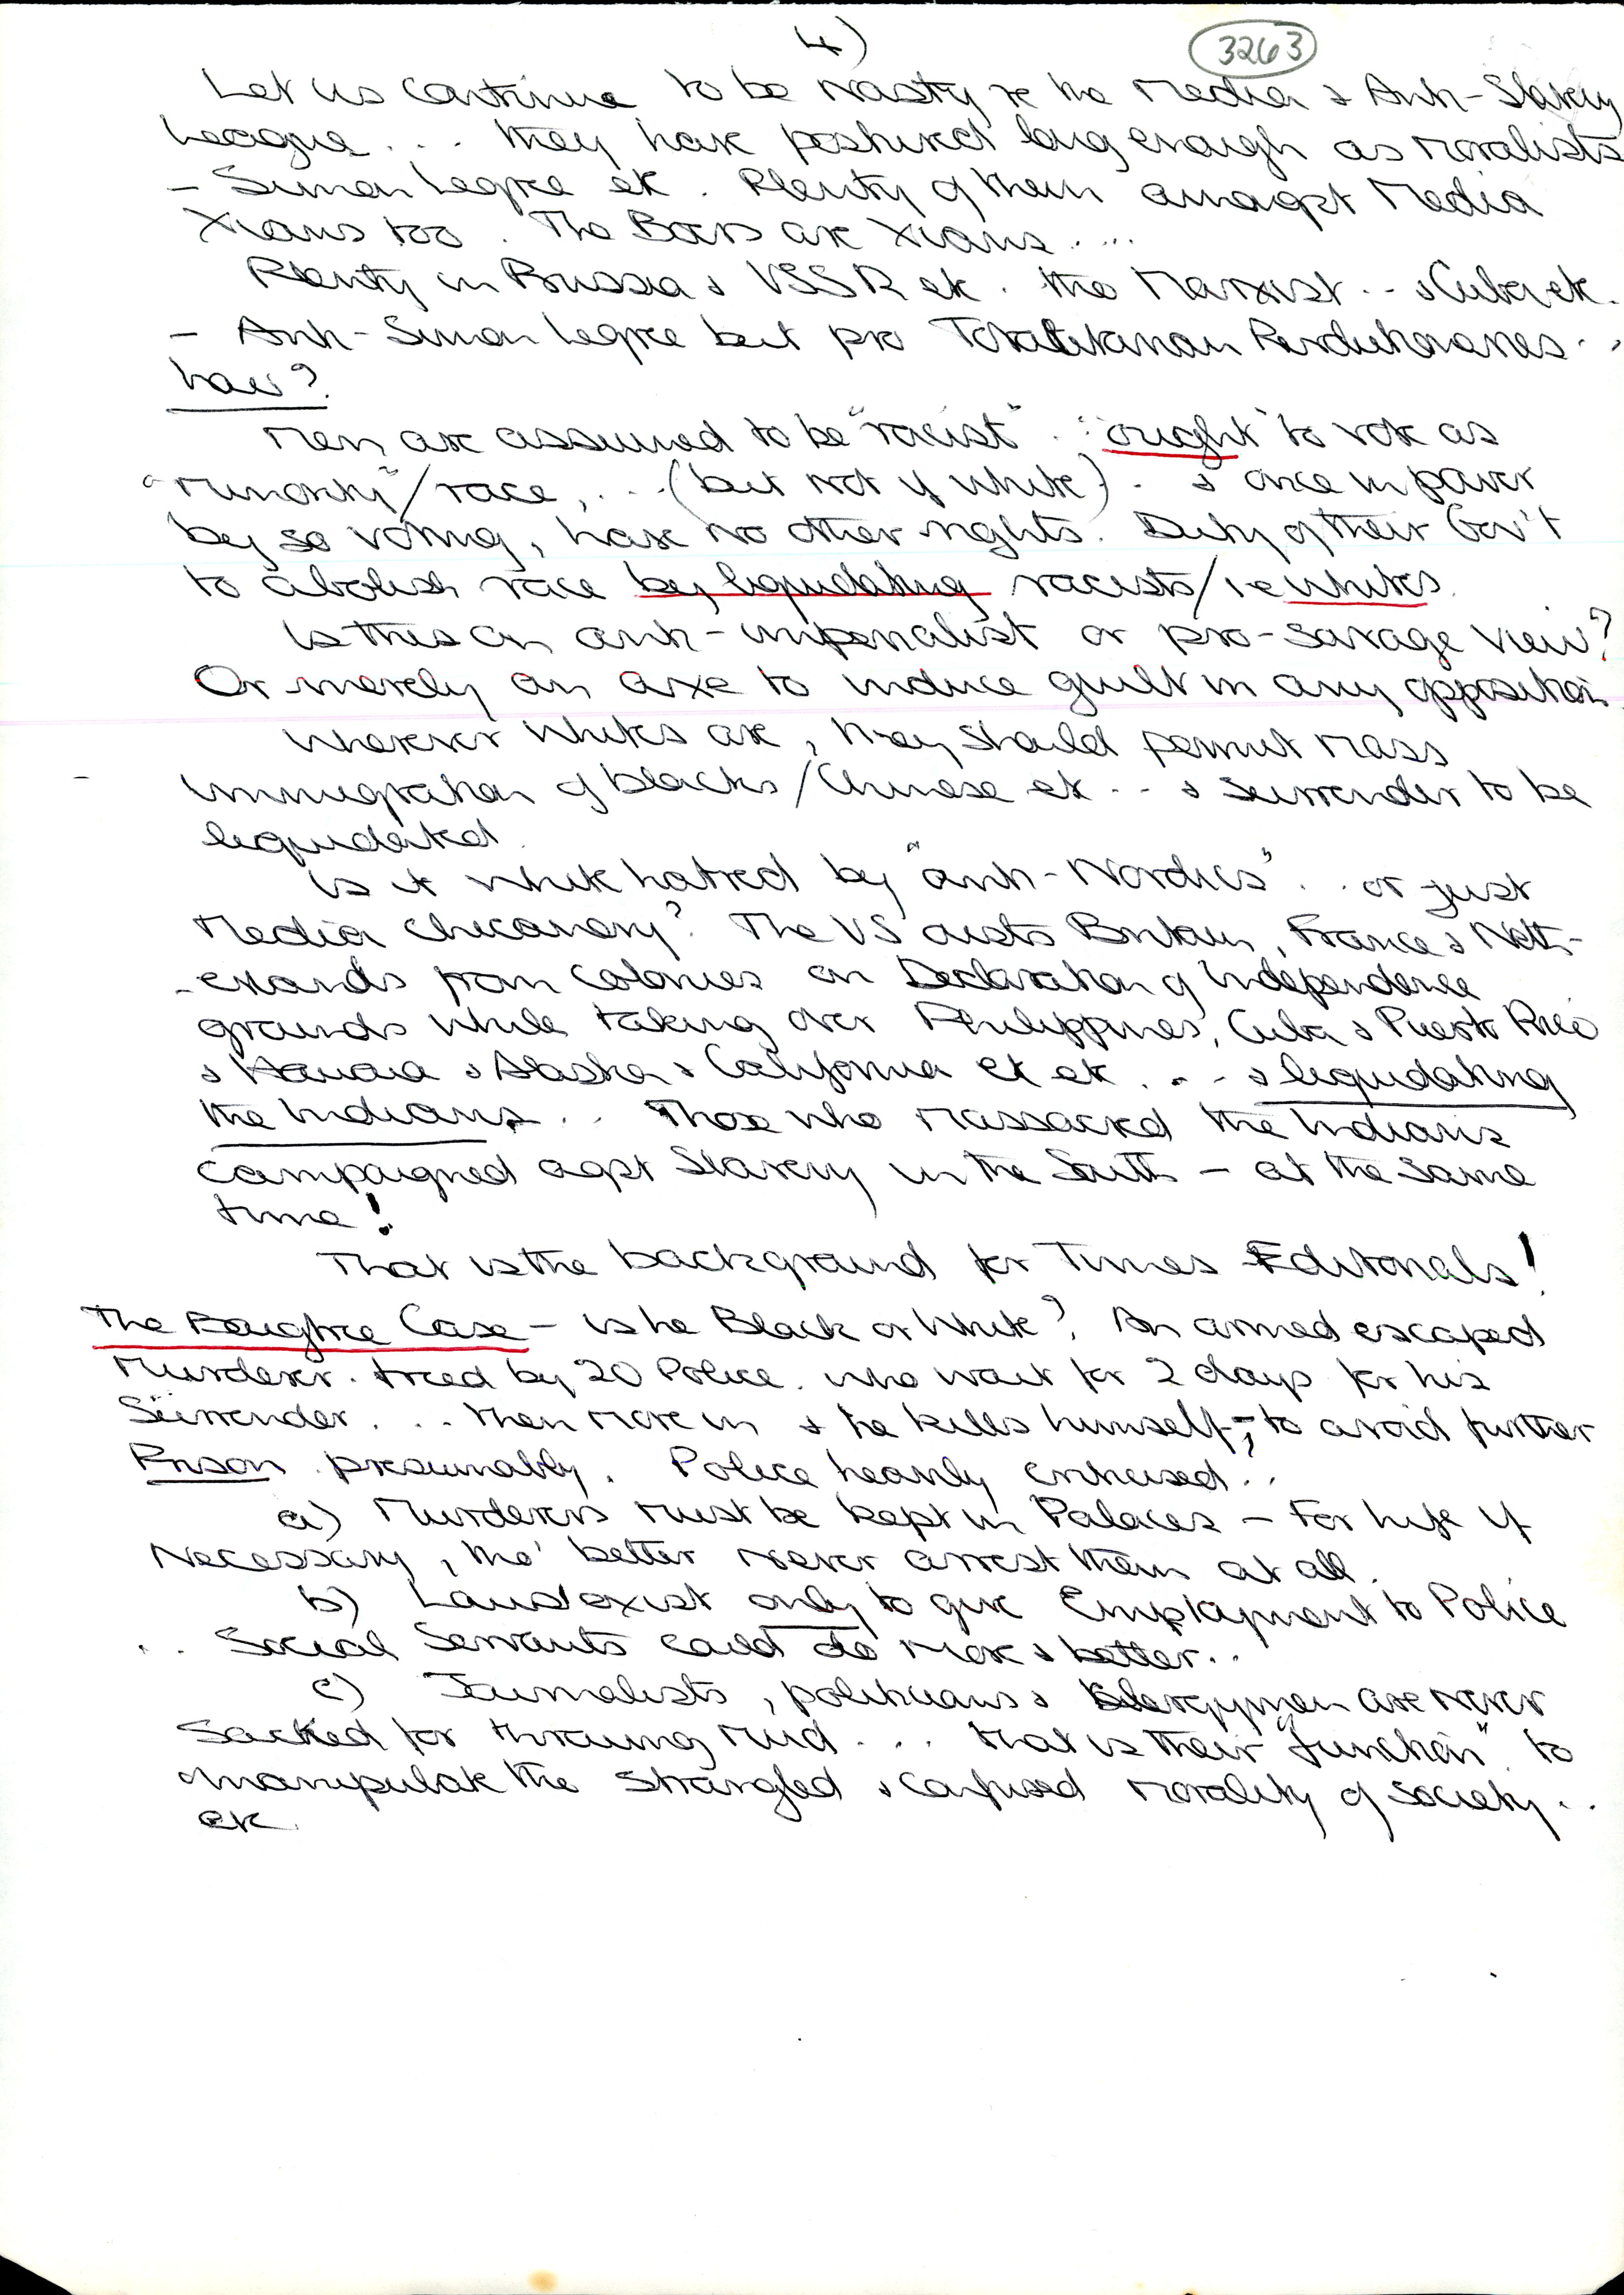 4)
3263
Let us continue to be nasty re the Media & Anti-Slavery
League... they have postured long enough as moralists
- Simon Legree etc. Plenty of them amongst Media
Xians too. The Boers are Xians....
Plenty in Russia & USSR etc. the Marxist.. & Cuba etc.
- Anti-Simon Legree but pro Totalitarian
how?
Men are assumed to be "racist". "ought" to vote as
"minority"/race,... (but not if white). & once in power
by so voting, have no other rights. Duty of their Gov't
to abolish race by liquidating racists/ie whites.
Is this an anti-imperialist or pro-savage view?
Or merely an axe to induce guilt in any opposition
Wherever whites are, they should permit mass
immigration of blacks/Chinese etc... & surrender to be
liquidated.
Is it white hatred by "anti-Nordics".. or just
Media chicanery? The US ousts Britain, France & Neth-
-erlands from colonies on Declaration of Independence
grounds while taking over Philippines, Cuba & Puerto Rico
& Hawaii & Alaska & California etc etc... & liquidating
the Indians... Those who massacred the Indians
campaigned agst Slavery in the South - at the same
time!
That is the background for Times Editorials!
The Case - is he Black or White? An armed escaped
Murderer. treed by 20 Police. who wait for 2 days for his
Surrender... then move in & he kills himself-, to avoid further
Prison presumably. Police heavily criticised..
a) Murderers must be kept in Palaces - for life if
necessary, tho' better never arrest them at all.
b) Laws exist only to give Employment to Police
.. Social Servants could do more & better..
c) Journalists, politicians & Clergymen are never
Sacked for throwing mud... that is their "function" to
manipulate the strangled & confused morality of society..
etc.